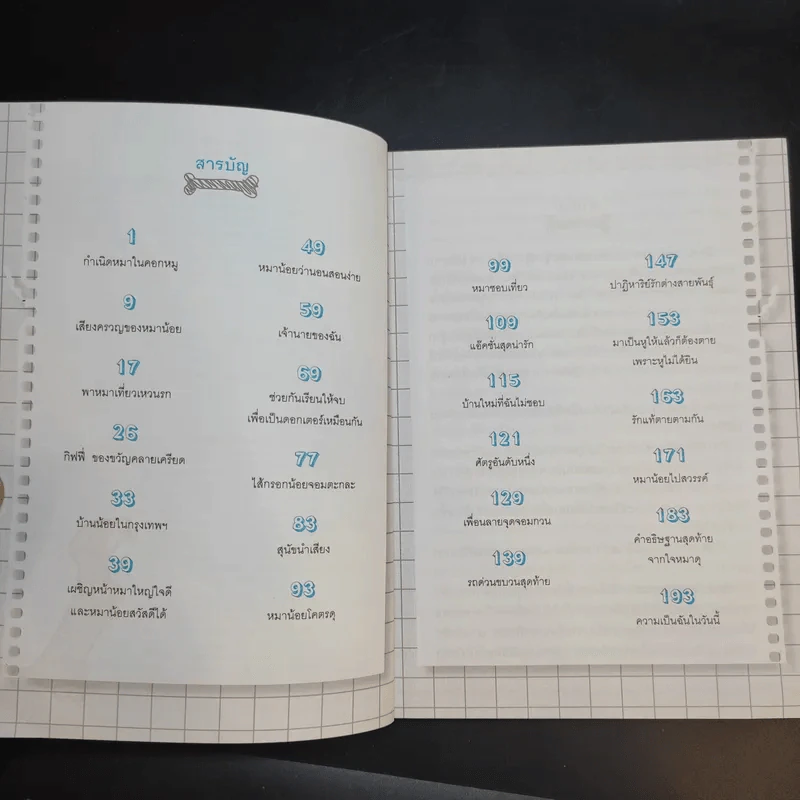 สารบัญ
1
กำเนิดหมาในคอกหมู
9
เสียงครวญของหมาน้อย
17
พาหมาเที่ยวเหวนรก
26
กิฟฟี่ ของขวัญคลายเครียด
33
บ้านน้อยในกรุงเทพฯ
39
เผชิญหน้าหมาใหญ่ใจดี
และหมาน้อยสวัสดีได้
49
หมาน้อยว่านอนสอนง่าย
59
เจ้านายของฉัน
69
ช่วยกันเรียนให้จบ
เพื่อเป็นดอกเตอร์เหมือนกัน
77
ไส้กรอกน้อยจอมตะกละ
83
สุนัขนำเสียง
93
หมาน้อยโคตรดุ
99
หมาชอบเที่ยว
109
แอ๊คชั่นสุดน่ารัก
115
บ้านใหม่ที่ฉันไม่ชอบ
121
ศัตรูอันดับหนึ่ง
129
เพื่อนลายจุดจอมกวน
139
รถด่วนขบวนสุดท้าย
147
ปาฏิหาริย์รักต่างสายพันธุ์
153
มาเป็นหูให้แล้วก็ต้องตาย
เพราะหูไม่ได้ยิน
163
รักแท้ตายตามกัน
171
หมาน้อยไปสวรรค์
183
คำอธิษฐานสุดท้าย
จากใจหมาดุ
193
ความเป็นฉันในวันนี้